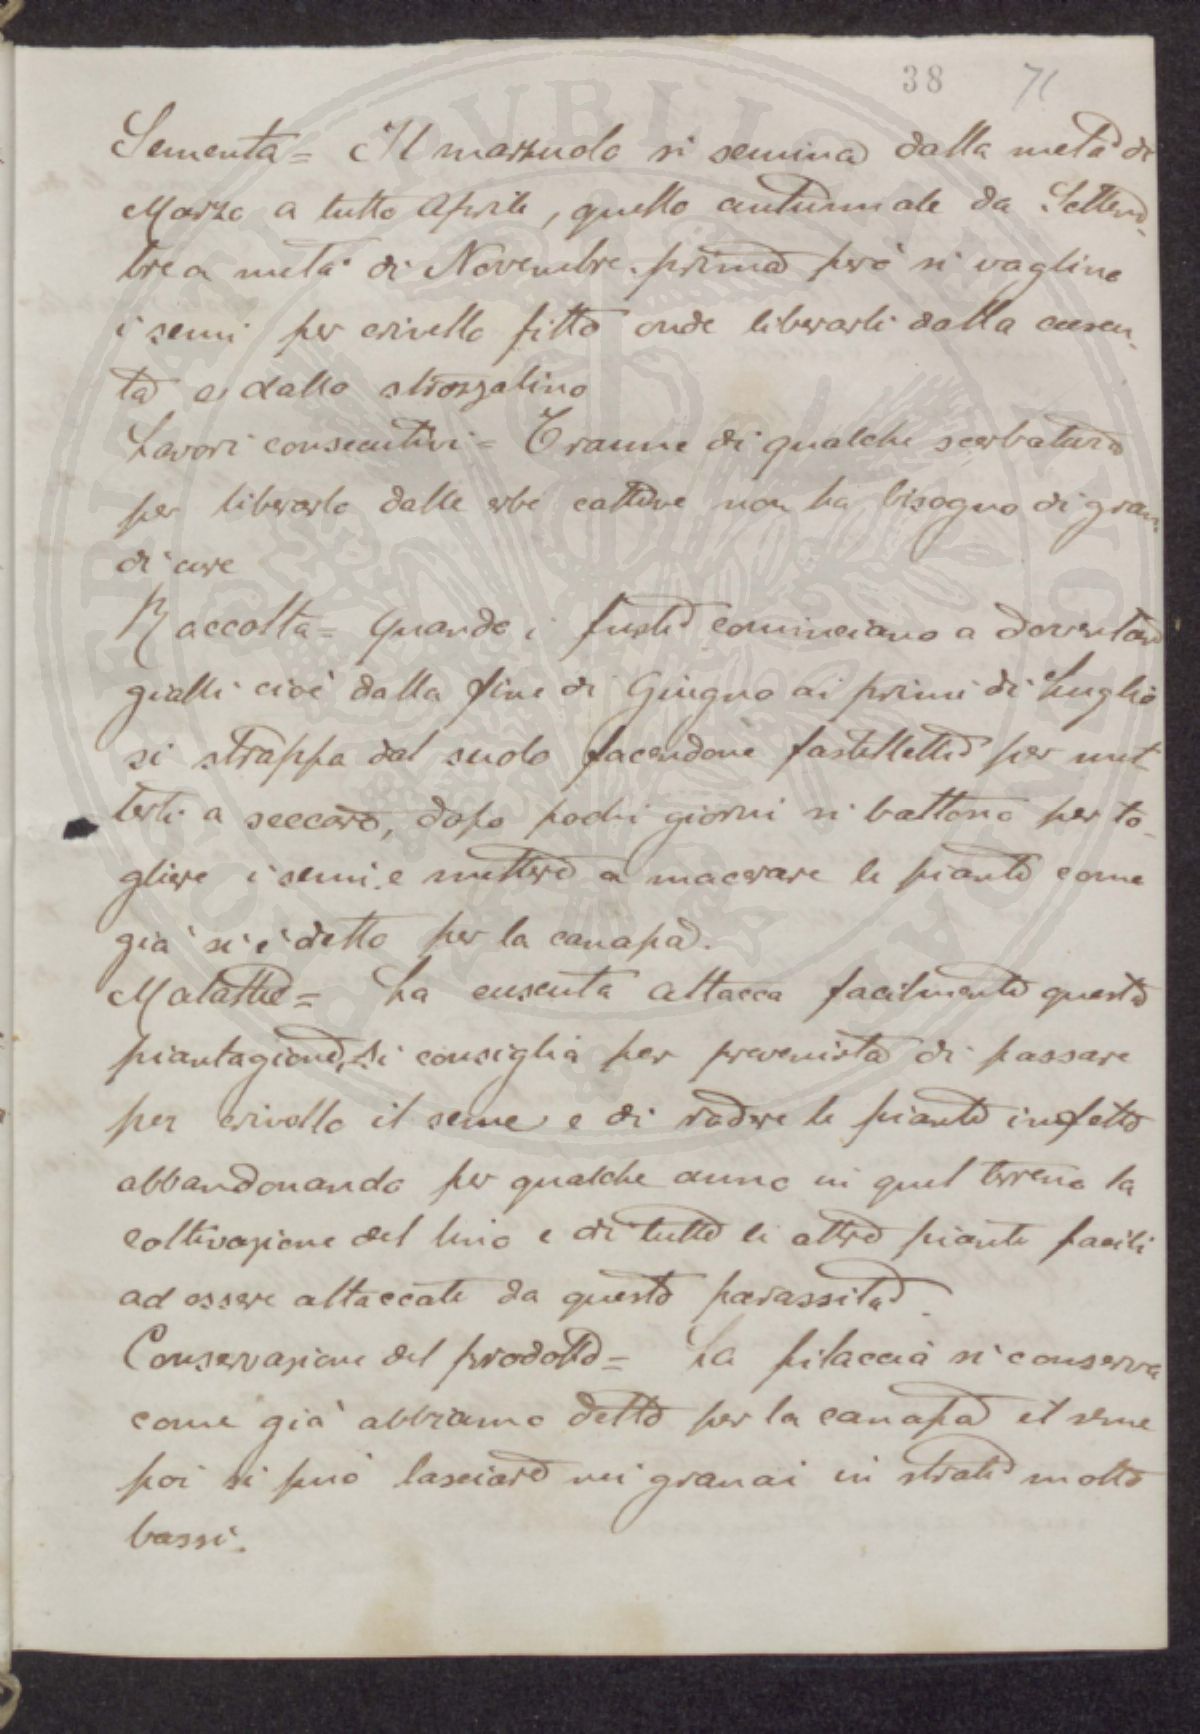 38 71
Sementa = Il marzuolo si semina dalla metà di
Marzo a tutto Aprile, quello autunnale da Settem-
bre a metà di Novembre. prima però si vagline
i semi per crivello fitto onde liberarli dalla cuscu-
ta e dallo strozzalino
Lavori consecutivi = Tranne di qualche scerbatura
per liberarlo dalle erbe cattive non ha bisogno di gran-
di cure
Raccolta = Quando i fusti cominciano a doventare
gialli cioè dalla fine di Giugno ai primi di Luglio
si strappa dal suolo facendone fastelletti per met-
terli a seccare, dopo pochi giorni si battono per to-
gliere i semi e mettere a macerare le piante come
già si è detto per la canapa.
Malattie = La cuscuta attacca facilmente questa
piantagione, Si consiglia per prevenirla di passare
per crivello il seme e di radere le piante infette
abbandonando per qualche anno in quel terreno la
coltivazione del lino e di tutte le altre piante facili
ad essere attaccate da questo parassita.
Conservazione del prodotto = La filaccia si conserva
come già abbiamo detto per la canapa il seme
poi si può lasciare nei granai in strati molto
bassi.